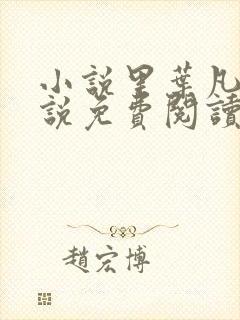 小說里葉凡
說免費閱讀
趙宏博